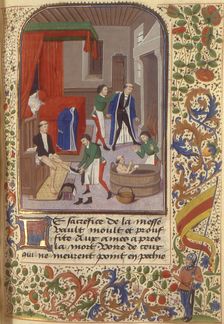 Le sacrefice de la messe
vault moult et prouf
fite aux ames apres
la mort voire de ceux
qui ne meurent point en peche